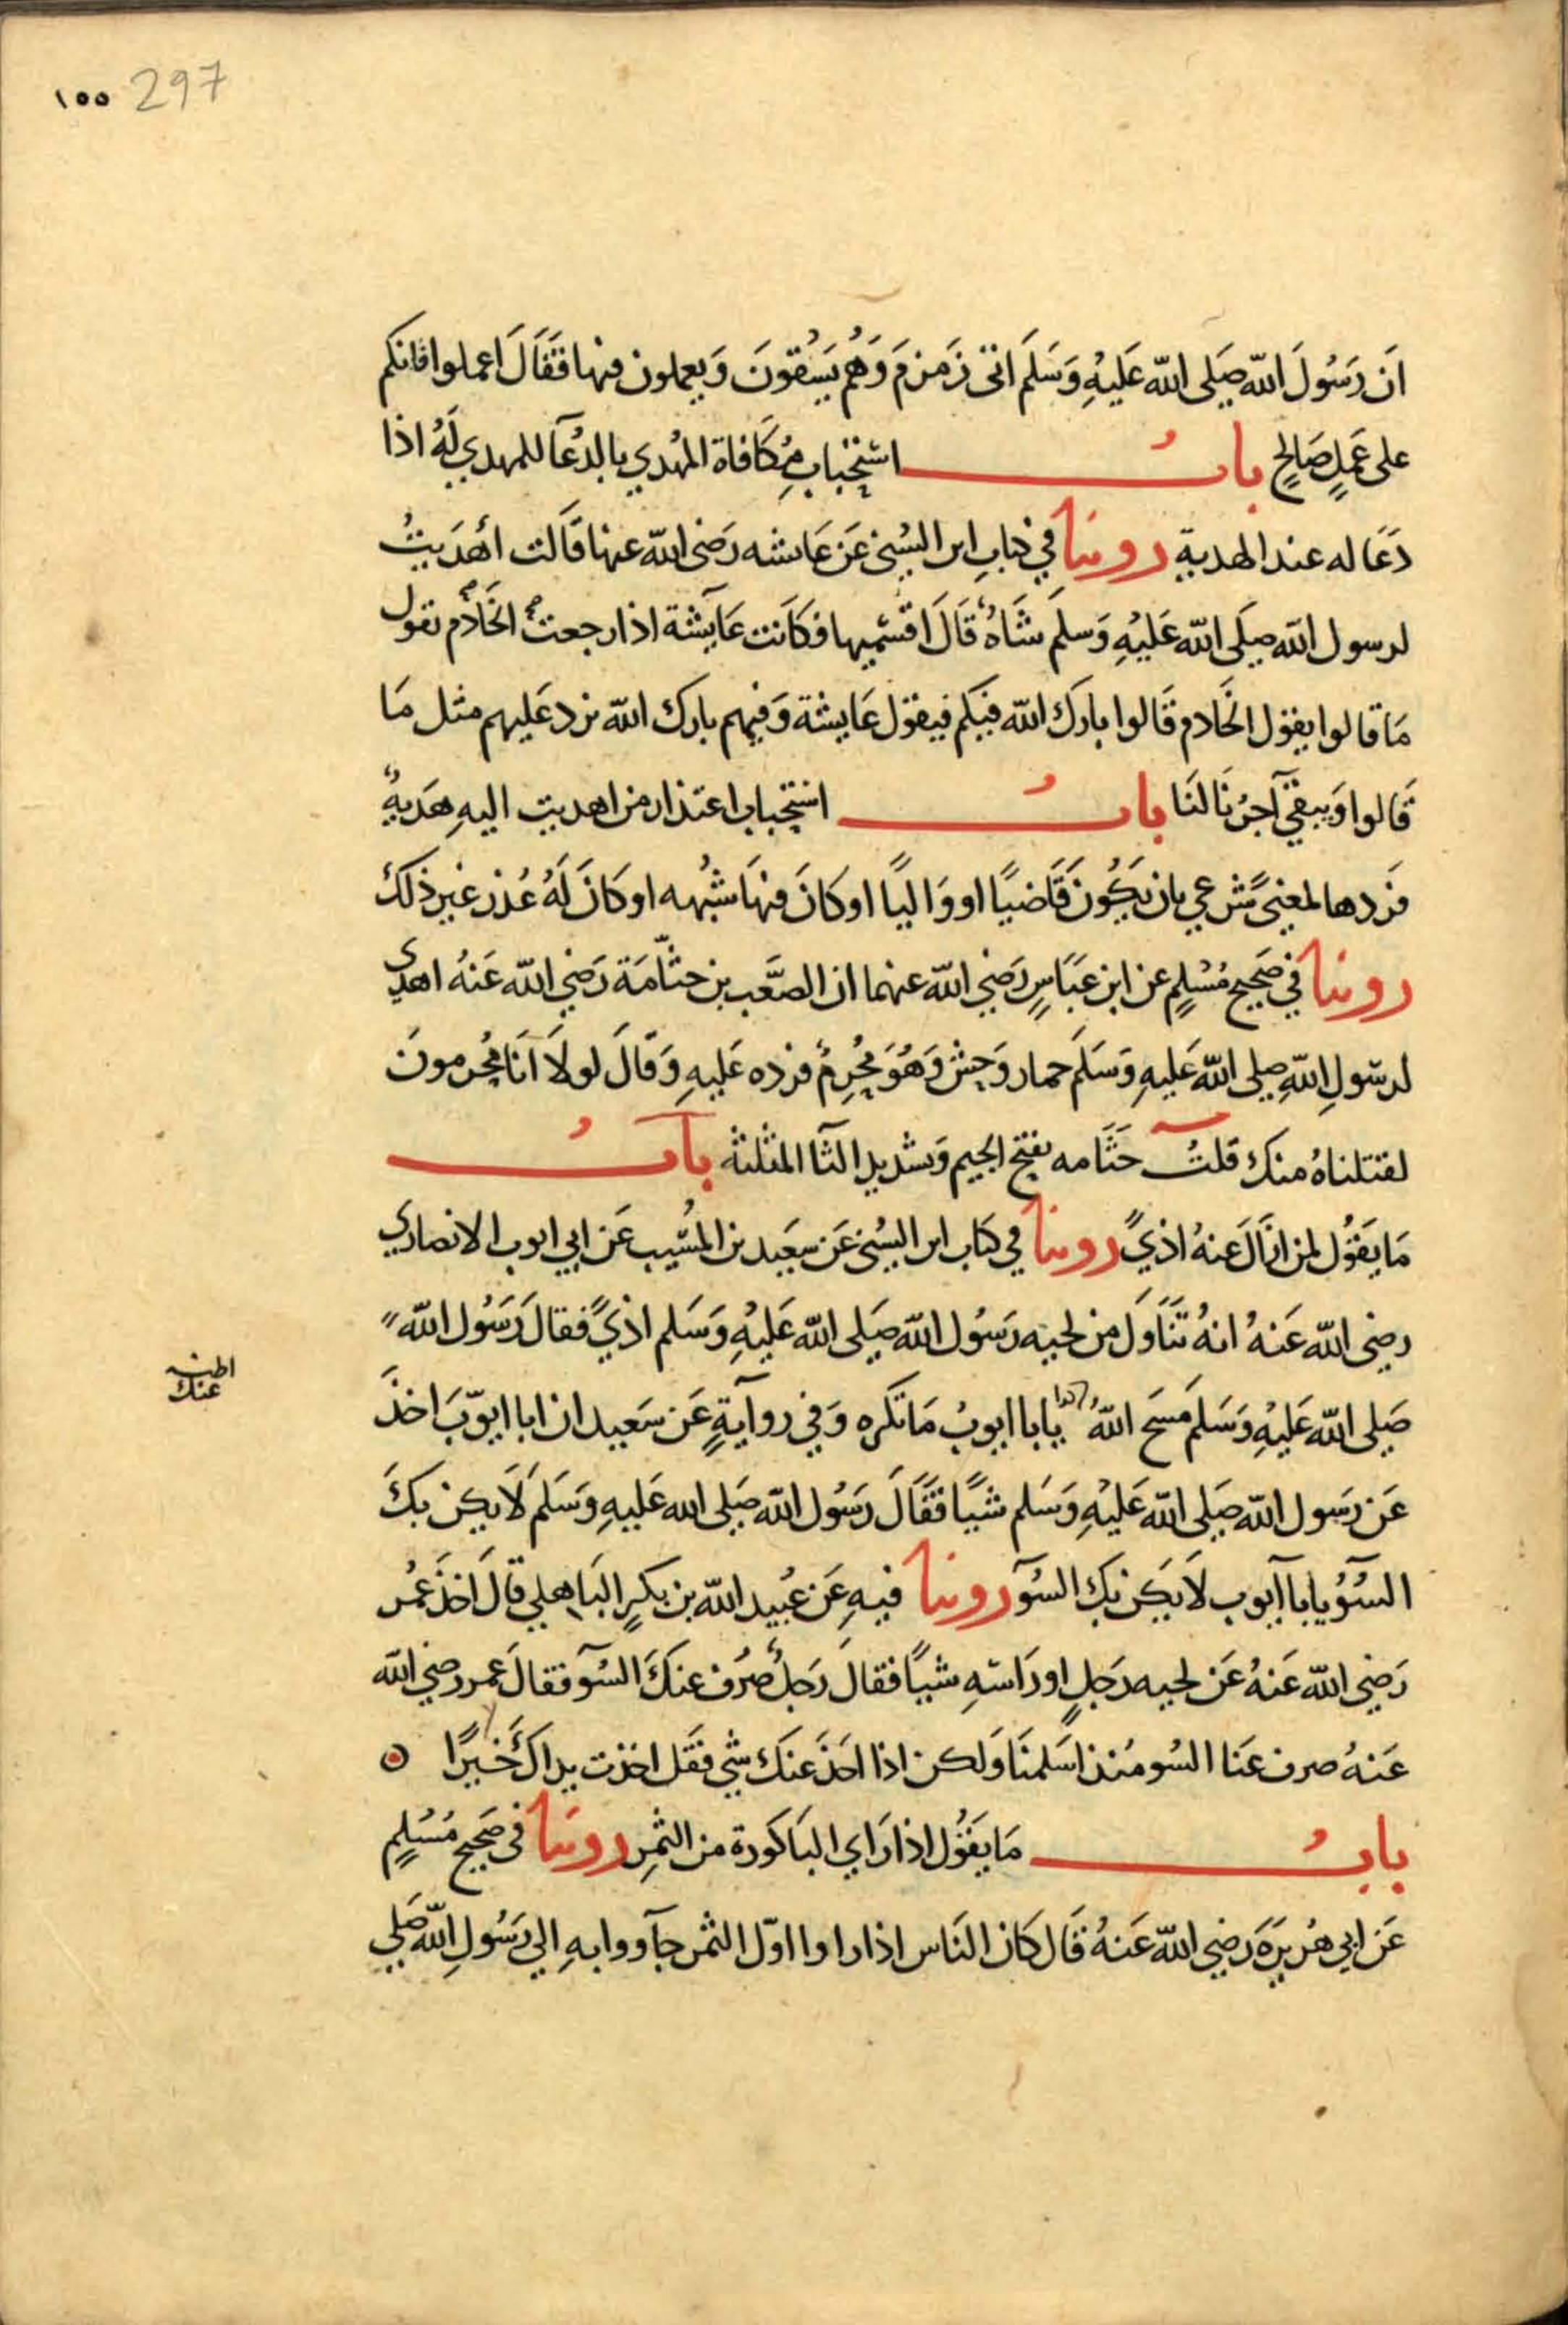 297 ١٥٥
ان رَسُولَ اللّه صَلى اللّه عَليْهِ وَسَلمَ اتى زَمزمَ وَهُم يَسْقُونَ وَيعملون فيها فَقَالَ اعملوا فانكم
على عَمَلٍ صَالِحٍ بابُ استِحْبابِ مُكَافاة المهْدي بالدُعَآ للمهدي لَهُ اذا
دَعَا له عند الهدية روينا في كتابِ ابن السُني عَن عَايشه رَضى اللّه عنها قَالت أهْدَيتُ
لرسول اللّه صلَى اللّه عَليْهِ وَسلمَ شَاةٌ قَالَ اقسْميها فكَانت عَايشة اذا رجعتْ الخَادم تقول
مَا قالوا يقول الخَادم قَالوا بارَك اللّه فيكم فيقول عَايشة وَفيهم بارك اللّه نرد عَليهم مثل مَا
قَالوا وَيبقيَ آجرُنَا لنَا بابُ استحْباب اعتذار من اهديت اليهِ هَديةٌ
فَردها لمعنىً شرعي بان يَكُونَ قَاضيًا او وَاليًا او كانَ فيهَا شبُهه او كانَ لَهُ عُذر غير ذلكَ
روينا في صَحيح مُسْلمٍ عن ابن عَبَاسٍ رَضي اللّه عنهما ان الصَّعب بن جثّامَة رَضي اللّه عَنهُ اهدي
لرسولِ اللّهِ صلى اللّه عَليهِ وَسَلمَ حمار وَحش وَهُوَ مُحْرِمٌ فرده عَليهِ وَقَالَ لولَا انَا مُحْرمونَ
لقتلناهُ منك قلتُ جَثَامه بفتح الجيم وَتشديد الثآ المثلثة بابُ
مَا يَقُول لمن ازَالَ عَنهُ اذيً روينا في كتاب ابن السُني عَن سعَيد بن المُسَّيب عَن ابي ايوب الانصاري
رضى اللّه عَنهُ انهُ تَناوَلَ من لحيه رَسُول اللّه صَلى اللّه عَليْهِ وَسَلم اذيً فقالَ رَسُول اللّه
صَلى اللّه عَليْهِ وَسَلمَ مَسَح اللّهُ يابا ايوبُ مَا تَكره وَفي روآيةٍ عَن سَعيد ان ابا ايوّبَ اخذَ
اظنه
عنك
عَن رَسول اللّه صَلى اللّه عَليْهِ وَسَلم شيًا فقَالَ رَسُول اللّه صَلى الله عَليهِ وَسَلم لَا يكن بكَ
السُوُ يابا آيوب لاَ يَكن بك السُوَ روينا فيهِ عَن عُبيد اللّه بن بكرٍ البَاهلي قالَ اخذَ عمُر
رَضي اللّه عَنهُ عَن لحيه رَجلٍ او رَاسهِ شيًا فقالَ رَجلٌ صَرُف عنكَ السُوَ فقالَ عمر رضي اللّه
عَنهُ صرف عَنا السُو مُنذ اسَلمنَا وَلكن اذا اخَذَ عنَك شي فقَل اخذت يداكَ خَيرًا
بابُ مَا يَقُول اذا رَاي البَاكورة من الثمرِ روينَا في صَحيح مُسْلمٍ
عَن ابي هُريرَه رَضي اللّه عَنهُ قَال كان النَاس اذا راوا اوّل الثمر جآووا بهِ الي رَسُولِ اللّه صَلي